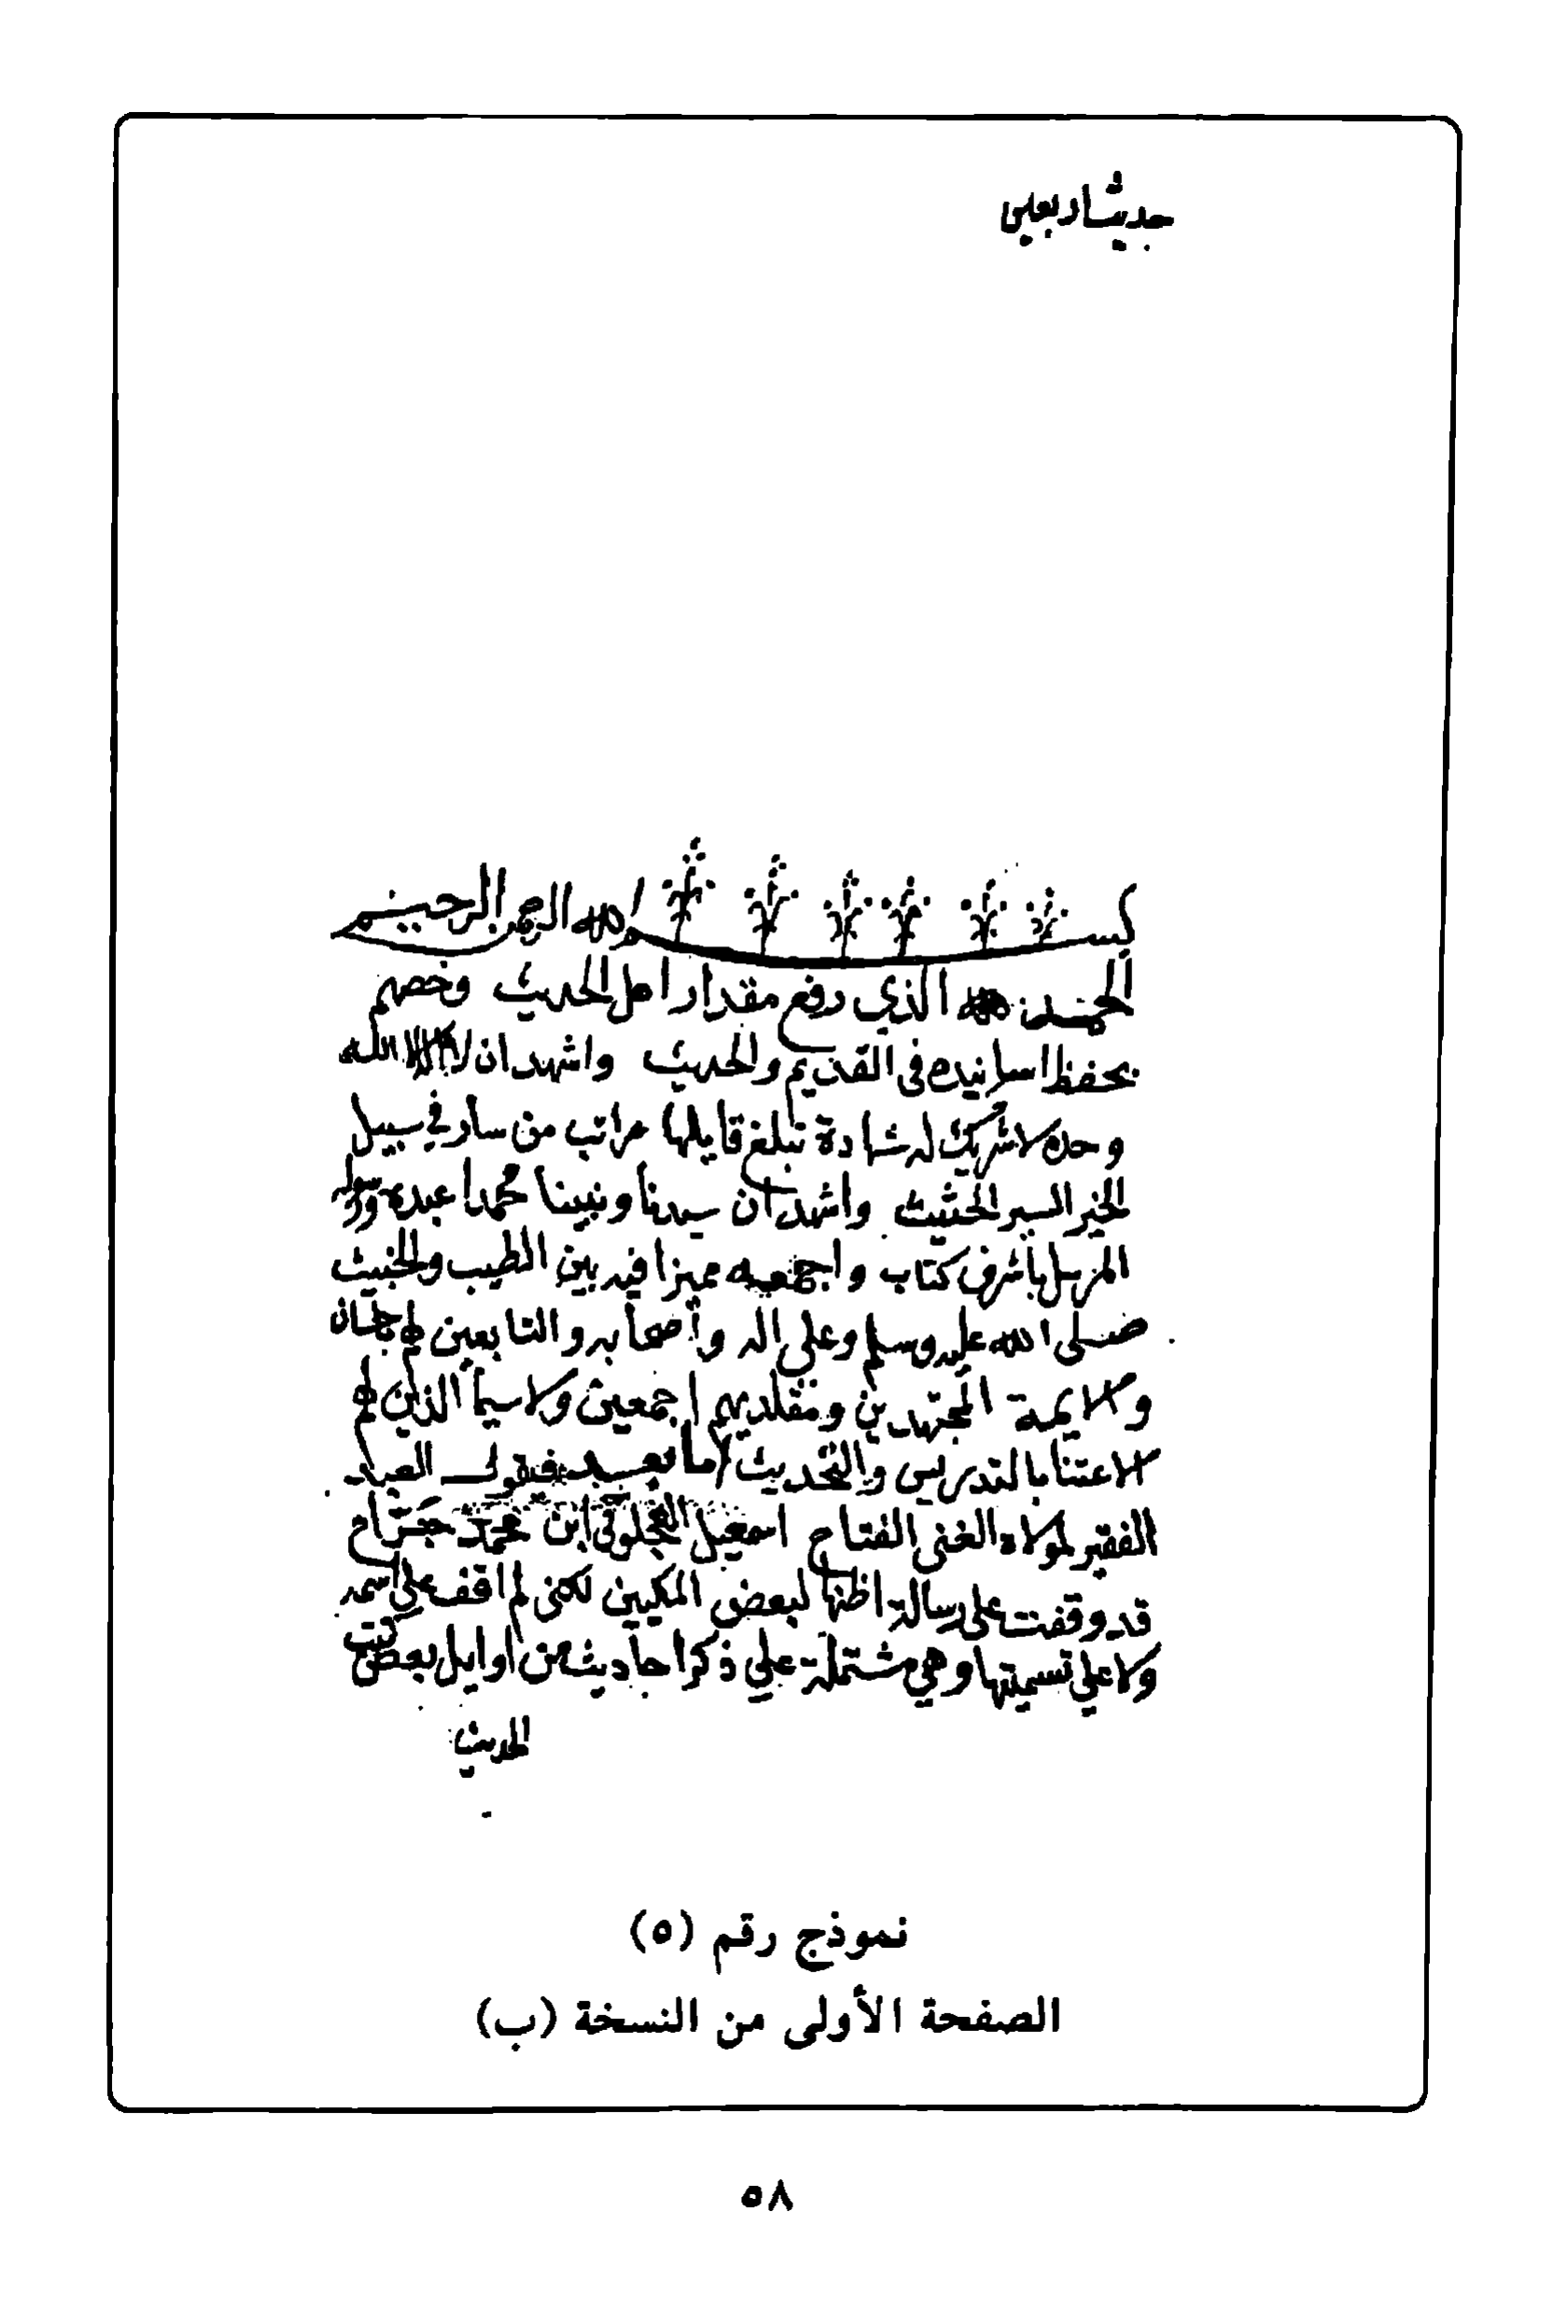 حديث اربعين
بسم الله الرحمن الرحيم
الحمد لله الذي رفع مقدار اهل الحديث وخصهم
بحفظ اسانيده في القديم والحديث واشهد ان لا اله الا الله
وحده لا شريك له شهادة تبلغ قايلها مراتب من سار في سبيل
الخير السير الحثيث واشهد ان سيدنا ونبينا محمدا عبده ورسوله
المرسل باشرف كتاب واجمعه مميزا فيه بين الطيب والخبيث
صلى الله عليه وسلم وعلى اله وأصحابه والتابعين لهم باحسان
والايمة المجتهدين ومقلديهم اجمعين ولا سيما الذين لهم
الاعتنا بالتدريس والتحديث اما بعد فيقول العبد
الفقير لمولاه الغني الفتاح اسمعيل العجلوني ابن محمد جراح
قد وقفت على رسالة اظنها لبعض المكيين لكني لم اقف على اسمه
ولا على تسميتها وهي مشتملة علي ذكر احاديث من اوايل بعض كتب
الحديث
نموذج رقم (٥)
الصفحة الأولى من النسخة (ب)
٥٨